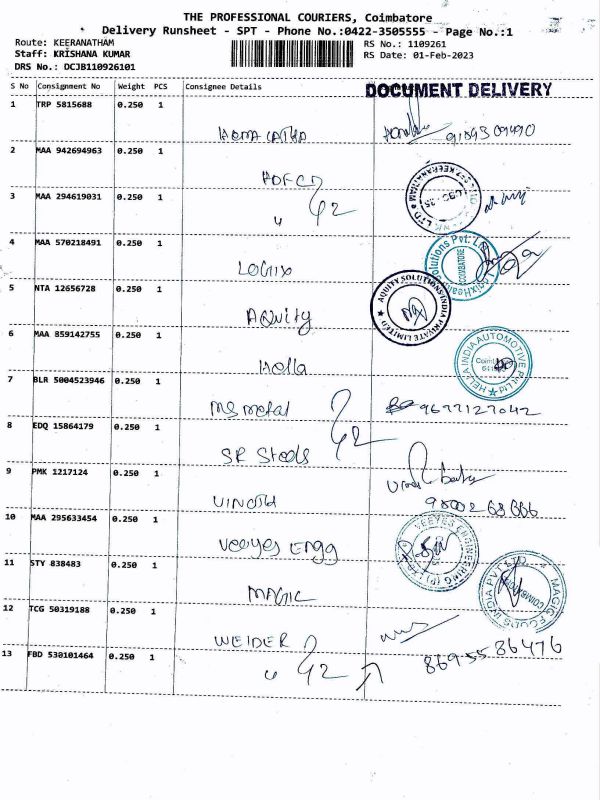 THE PROFESSIONAL COURIERS, Coimbatore
Delivery Runsheet - SPT - Phone No.:0422-3505555 - Page No.:1
Route: KEERANATHAM
Staff: KRISHANA KUMAR
DRS No.: DCJB110926101
RS No.: 1109261
RS Date: 01-Feb-2023
S No Consignment No Weight PCS Consignee Details
DOCUMENT DELIVERY
1 TRP 5815688 0.250 1
2 MAA 942694963 0.250 1
HDFC
3 MAA 294619031 0.250 1
"
4 MAA 570218491 0.250 1
LOGIX
COIMBATORE
5 NTA 12656728 0.250 1
AQuity
AQUITY SOLUTIONS INDIA PRIVATE LIMITED
6 MAA 859142755 0.250 1
Hella
HELLA INDIA AUTOMOTIVE Pvt Ltd
7 BLR 5004523946 0.250 1
MS metal
9677127042
8 EDQ 15864179 0.250 1
SR Steels
9 PMK 1217124 0.250 1
VINOTH
10 MAA 295633454 0.250 1
Veeyes Engg
VEEYES ENGINEERING (P) LTD
11 STY 838483 0.250 1
MAGIC
12 TCG 50319188 0.250 1
WEIDER
8695586476
13 FBD 530101464 0.250 1
"